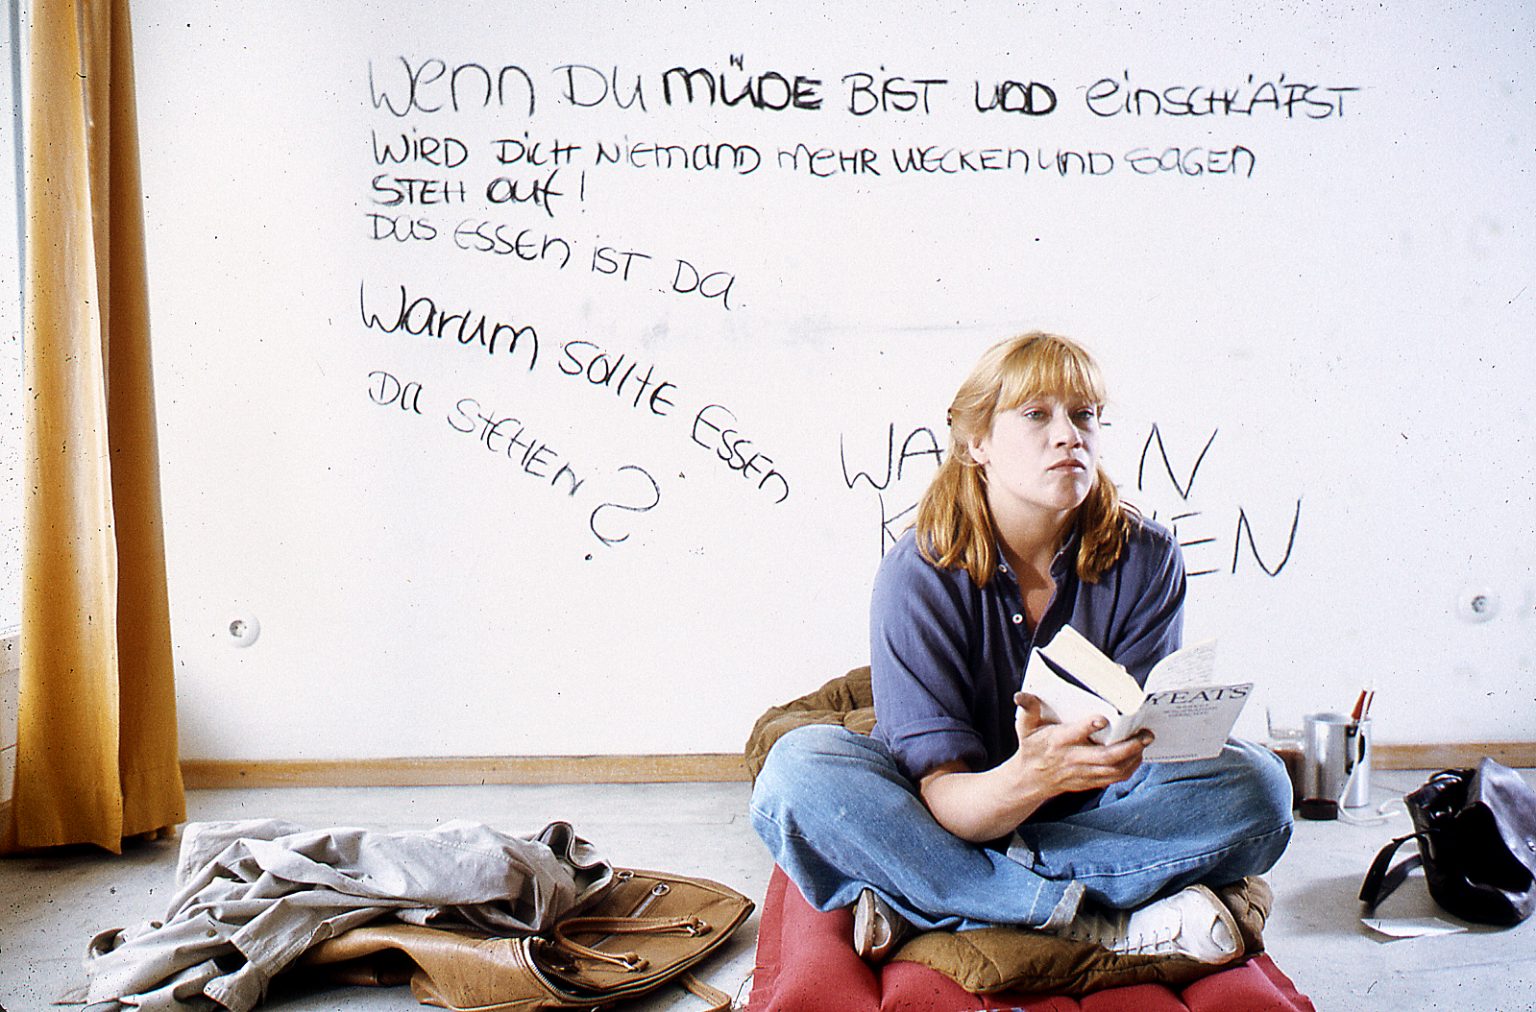 Wenn DU MÜDE BIST UND einSCHLÄFST
WIRD DICH NIEMAND MEHR WECKEN UND SAGEN
STEH auf!
Das ESSEN IST Da.
Warum sollte Essen
Da STEHEN?
WA EN
K EN
YEATS